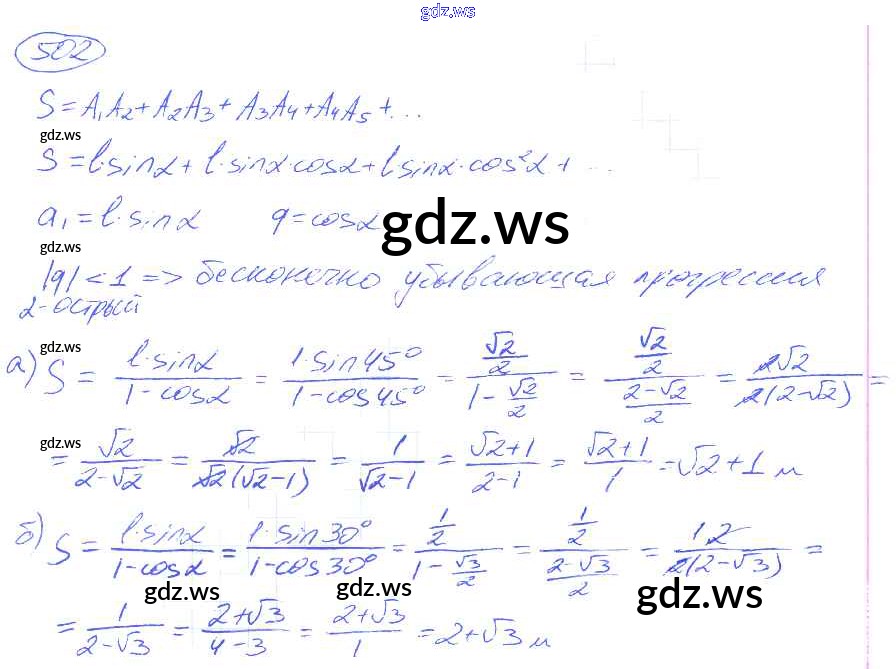 gdz.ws
502
S = A₁A₂ + A₂A₃ + A₃A₄ + A₄A₅ + ...
gdz.ws
S = l·sinα + l·sinα·cosα + l·sinα·cos²α + ...
a₁ = l·sinα q = cosα gdz.ws
gdz.ws
|q| < 1 => бесконечно убывающая прогрессия
α-острый
gdz.ws
а) S = (l·sinα)/(1-cosα) = (1·sin45°)/(1-cos45°) = (√2/2)/(1-√2/2) = (√2/2)/((2-√2)/2) = (2√2)/(2(2-√2)) =
gdz.ws
= √2/(2-√2) = √2/(√2(√2-1)) = 1/(√2-1) = (√2+1)/(2-1) = (√2+1)/1 = √2+1 м
б) S = (l·sinα)/(1-cosα) = (1·sin30°)/(1-cos30°) = (1/2)/(1-√3/2) = (1/2)/((2-√3)/2) = (1·2)/(2(2-√3)) =
gdz.ws gdz.ws gdz.ws
= 1/(2-√3) = (2+√3)/(4-3) = (2+√3)/1 = 2+√3 м